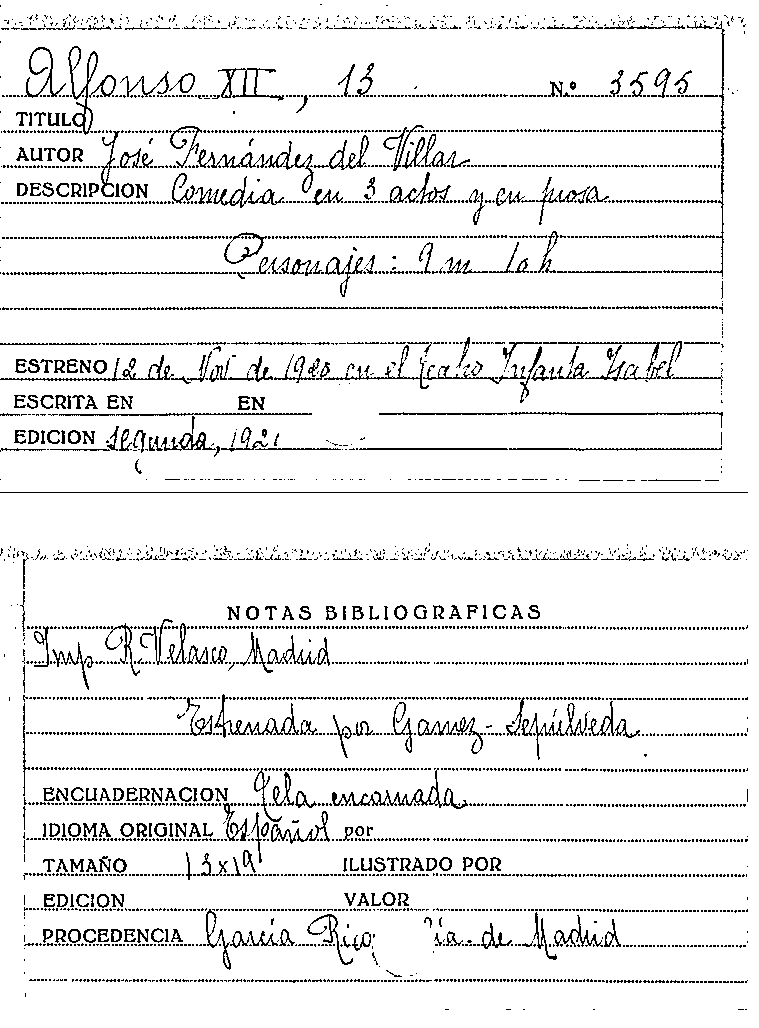 Alfonso XII, 13 N.º 3595
TITULO
AUTOR José Fernández del Villar
DESCRIPCION Comedia en 3 actos y en prosa
Personajes: 9 m 10 h
ESTRENO 12 de Nov de 1920 en el teatro Infanta Isabel
ESCRITA EN EN
EDICION segunda, 1921
NOTAS BIBLIOGRAFICAS
Imp R. Velasco, Madrid
Estrenada por Gamez-Sepúlveda
ENCUADERNACION Tela encarnada
IDIOMA ORIGINAL Español por
TAMAÑO 13x19 ILUSTRADO POR
EDICION VALOR
PROCEDENCIA García Rico ía. de Madrid